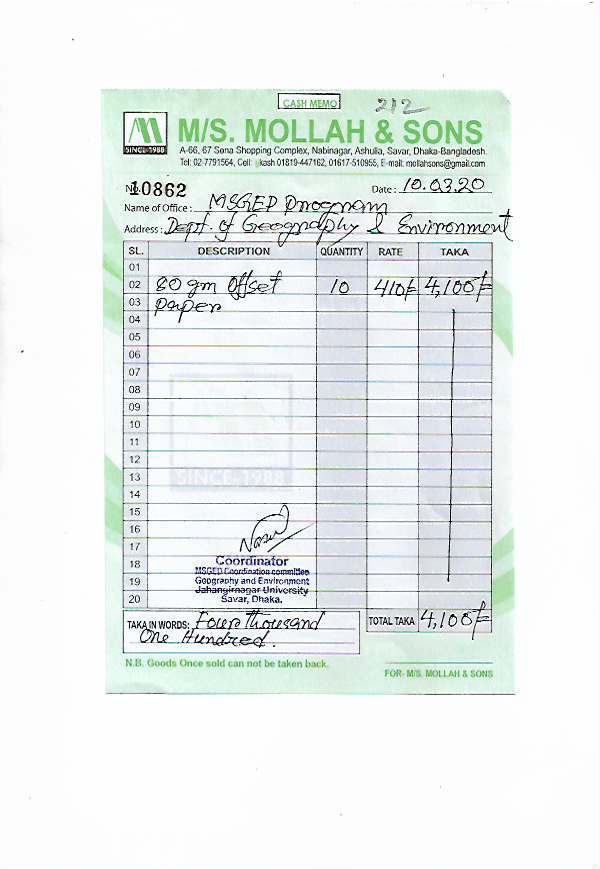 CASH MEMO
212
M/S. MOLLAH & SONS
SINCE-1988
A-66, 67 Sena Shopping Complex, Nabinagar, Ashulia, Savar, Dhaka-Bangladesh.
Tel: 02-7791564, Cell: kash 01819-447162, 01617-510955, E-mail: mollahsons@gmail.com
No. 10862
Date: 10.03.20
Name of Office: MSGED program
Address: Dept. of Geography & Environment
SL. DESCRIPTION QUANTITY RATE TAKA
01
02 80 gm offset 10 410/= 4,100/=
03 paper
04
05
06
07
08
09
10
11
12
13
SINCE-1988
14
15
16
17
18 Coordinator
MSGED Coordination committee
19 Geography and Environment
Jahangirnagar University
20 Savar, Dhaka.
TAKA IN WORDS: Four thousand
One Hundred.
TOTAL TAKA 4,100/=
N.B. Goods Once sold can not be taken back.
FOR- M/S. MOLLAH & SONS